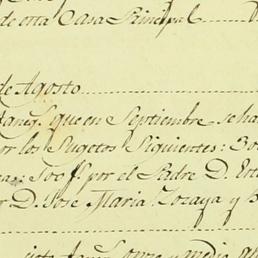 de esta Casa Principal
de Agosto
que en Septiembre se ha
por los Sugetos Siguientes: 30
500 f. por el Padre D.
D. Jose Maria Zozaya y
onze y media